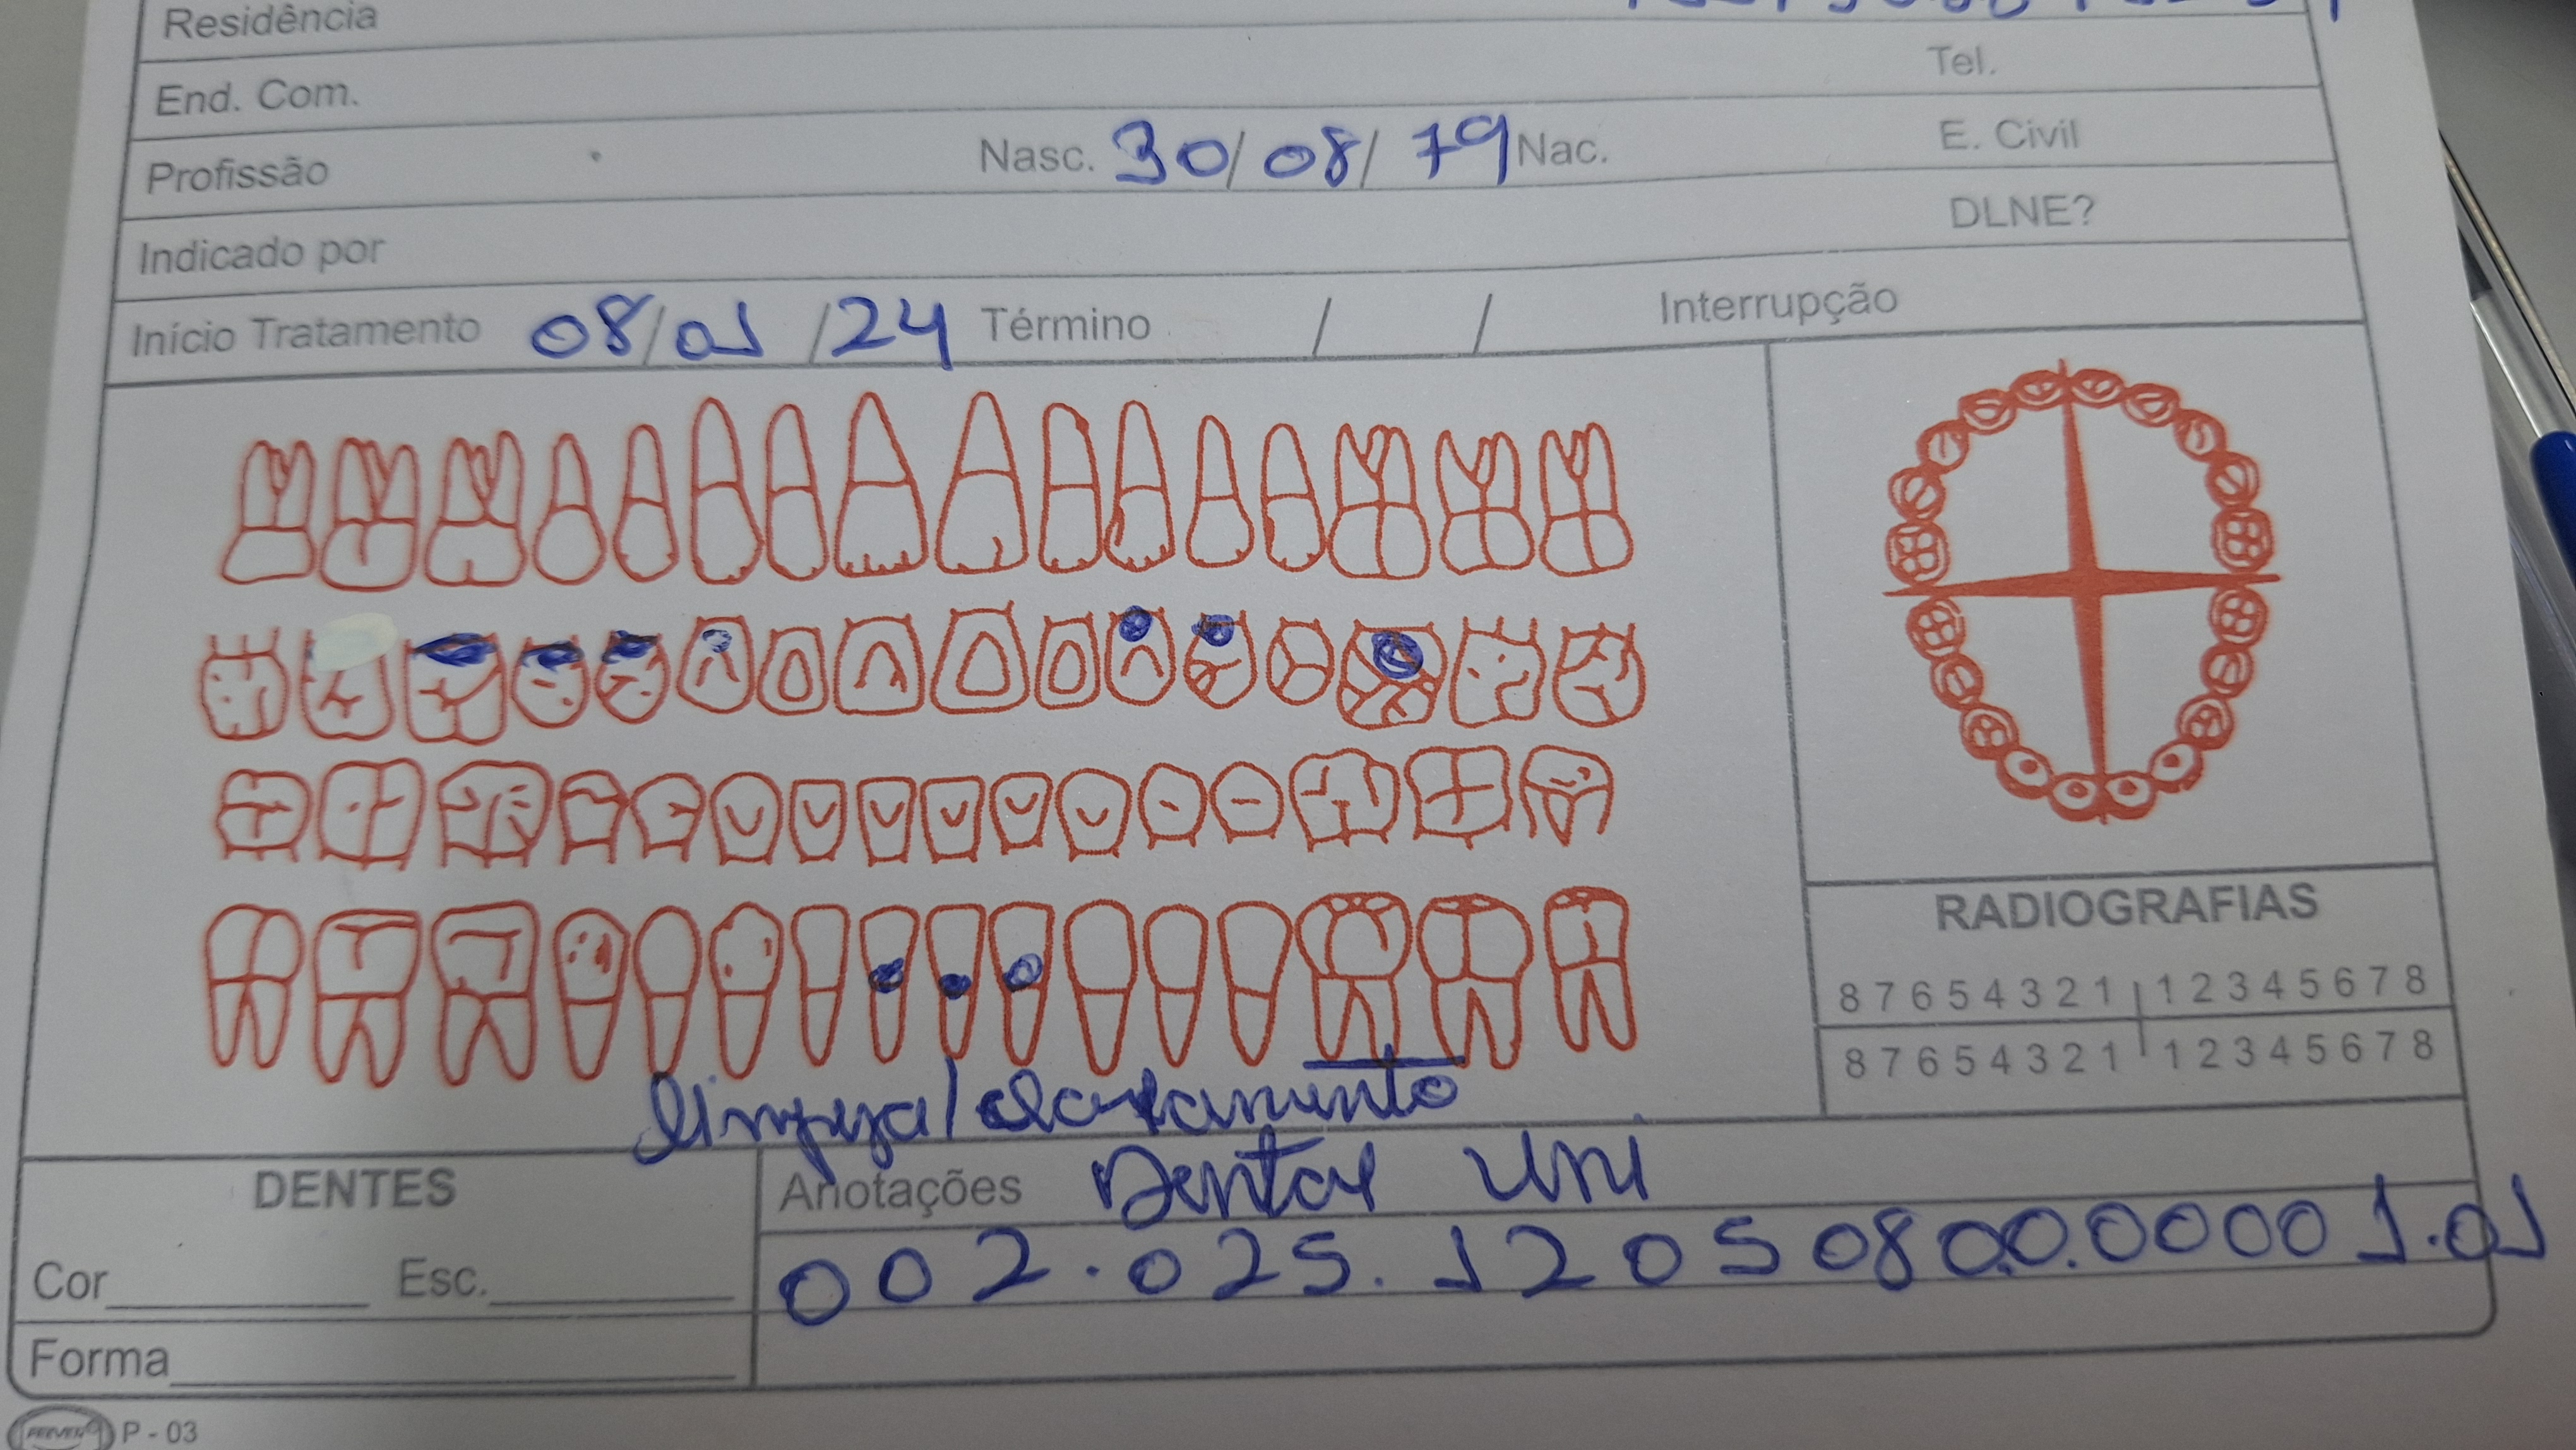 Residência
End. Com. Tel.
Profissão Nasc. 30/08/79 Nac. E. Civil
Indicado por DLNE?
Início Tratamento 08/01/24 Término / / Interrupção
RADIOGRAFIAS
8 7 6 5 4 3 2 1 1 2 3 4 5 6 7 8
8 7 6 5 4 3 2 1 1 2 3 4 5 6 7 8
limpeza/
DENTES
Anotações Dental Uni
Cor Esc.
002.025.12050800.00001.01
Forma
P - 03